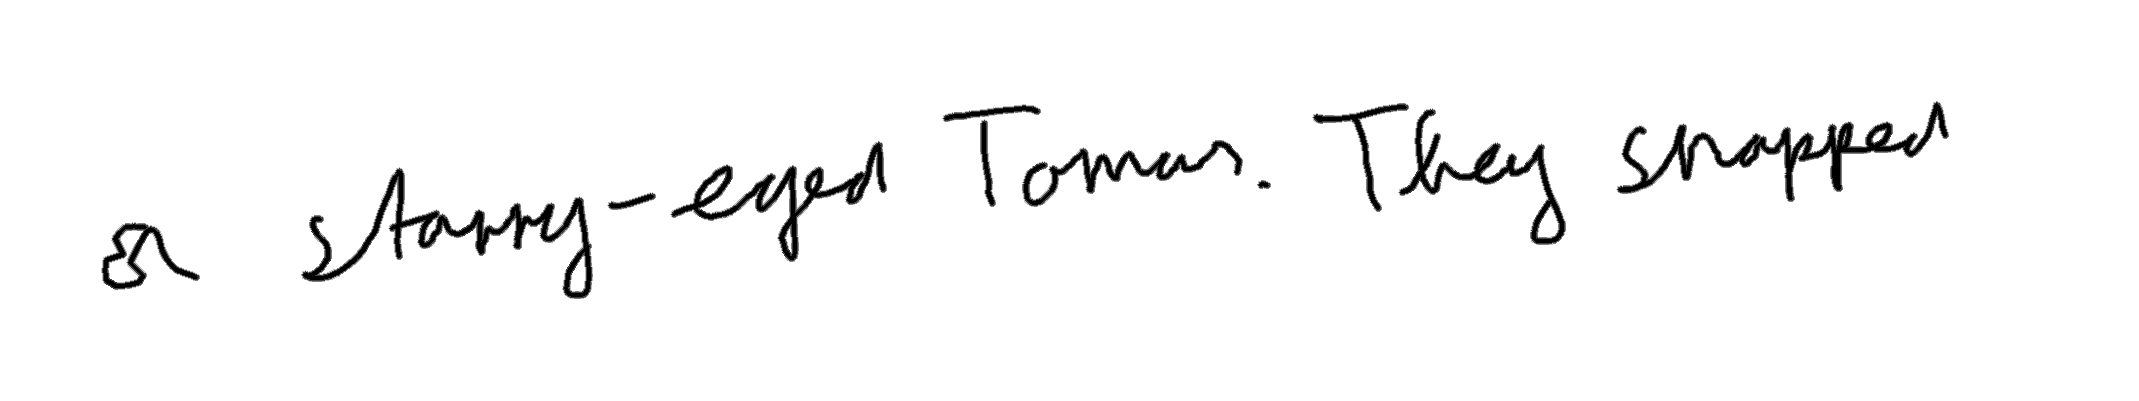 a starry-eyed Tomas. They snapped